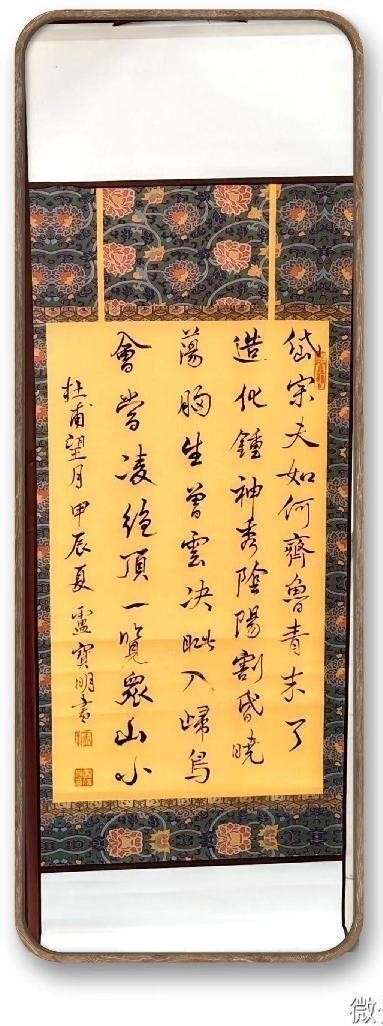 岱宗夫如何齊魯青未了
造化鍾神秀陰陽割昏曉
蕩胸生曾雲决眦入歸鳥
會當凌絕頂一覽衆山小
杜甫望月甲辰夏靈寶明書
微